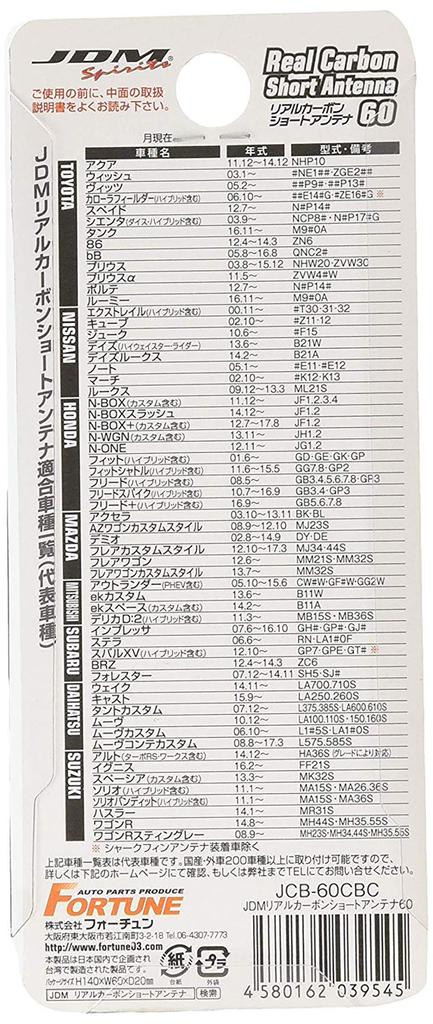 JDM Spirits
Real Carbon
Short Antenna
リアルカーボン
ショートアンテナ 60
ご使用の前に、中面の取扱
説明書をよくお読み下さい。
月現在
JDMリアルカーボンショートアンテナ適合車種一覧(代表車種)
車種名 年式 型式・備考
TOYOTA
アクア 11.12〜14.12 NHP10
ウィッシュ 03.1〜 #NE1##・ZGE2##
ヴィッツ 05.2〜 ##P9#・##P13#
カローラフィールダー(ハイブリッド含む) 06.10〜 ##E14#G・#ZE16#G ※
スペイド 12.7〜 N#P14#
シエンタ(ダイス・ハイブリッド含む) 03.9〜 NCP8#・N#P17#G
タンク 16.11〜 M9#0A
86 12.4〜14.3 ZN6
bB 05.8〜16.8 QNC2#
プリウス 03.8〜15.12 NHW20・ZVW30
プリウスα 11.5〜 ZVW4#W
ポルテ 12.7〜 N#P14#
ルーミー 16.11〜 M9#0A
NISSAN
エクストレイル(ハイブリッド含む) 00.11〜 #T30・31・32
キューブ 02.10〜 #Z11・12
ジューク 10.6〜 #F15
デイズ(ハイウェイスター・ライダー) 13.6〜 B21W
デイズルークス 14.2〜 B21A
ノート 05.1〜 #E11・#E12
マーチ 02.10〜 #K12・K13
ルークス 09.12〜13.3 ML21S
HONDA
N-BOX(カスタム含む) 11.12〜 JF1.2.3.4
N-BOXスラッシュ 14.12〜 JF1.2
N-BOX+(カスタム含む) 12.7〜17.8 JF1.2
N-WGN(カスタム含む) 13.11〜 JH1.2
N-ONE 12.11〜 JG1.2
フィット(ハイブリッド含む) 01.6〜 GD・GE・GK・GP
フィットシャトル(ハイブリッド含む) 11.6〜15.5 GG7.8・GP2
フリード(ハイブリッド含む) 08.5〜 GB3.4.5.6.7.8・GP3
フリードスパイク(ハイブリッド含む) 10.7〜16.9 GB3.4・GP3
フリード+(ハイブリッド含む) 16.9〜 GB5.6.7.8
MAZDA
アクセラ 03.10〜13.11 BK・BL
AZワゴンカスタムスタイル 08.9〜12.10 MJ23S
デミオ 02.8〜14.9 DY・DE
フレアカスタムスタイル 12.10〜17.3 MJ34・44S
フレアワゴン 12.6〜 MM21S・MM32S
フレアワゴンカスタムスタイル 13.7〜 MM32S
MITSUBISHI
アウトランダー(PHEV含む) 05.10〜15.6 CW#W・GF#W・GG2W
ekカスタム 13.6〜 B11W
ekスペース(カスタム含む) 14.2〜 B11A
デリカD:2(ハイブリッド含む) 11.3〜 MB15S・MB36S
SUBARU
インプレッサ 07.6〜16.10 GH#・GP#・GJ#
ステラ 06.6〜 RN・LA1#0F
スバルXV(ハイブリッド含む) 12.10〜 GP7・GPE・GT# ※
BRZ 12.4〜14.3 ZC6
フォレスター 07.12〜14.11 SH5・SJ#
DAIHATSU
ウェイク 14.11〜 LA700.710S
キャスト 15.9〜 LA250.260S
タントカスタム 07.12〜 L375.385S・LA600.610S
ムーヴ 10.12〜 LA100.110S・150.160S
ムーヴカスタム 06.10〜 L1#5S・LA1#0S
ムーヴコンテカスタム 08.8〜17.3 L575.585S
SUZUKI
アルト(ターボRS・ワークス含む) 14.12〜 HA36S (グレードにより対応)
イグニス 16.2〜 FF21S
スペーシア(カスタム含む) 13.3〜 MK32S
ソリオ(ハイブリッド含む) 11.1〜 MA15S・MA26.36S
ソリオバンディット(ハイブリッド含む) 11.1〜 MA15S・MA36S
ハスラー 14.1〜 MR31S
ワゴンR 14.8〜 MH44S・MH35.55S
ワゴンRスティングレー 08.9〜 MH23S・MH34.44S・MH35.55S
※ シャークフィンアンテナ装着車除く
上記車種一覧表は代表車種です。国産・外車200車種以上に取り付け可能ですので、
詳しくは下記のホームページにて確認、もしくは弊社までTELにてお問い合せください。
AUTO PARTS PRODUCE
FORTUNE
JCB-60CBC
JDMリアルカーボンショートアンテナ60
株式会社 フォーチュン
大阪府東大阪市若江南町3-2-18 Tel.06-4307-7773
http://www.fortune03.com
本製品は日本国内で企画され
台湾で製造された商品です。
パッケージサイズ H140×W60×D20mm
紙 台紙
プラ 外袋
JDM リアルカーボンショートアンテナ 検索
4 580162 039545